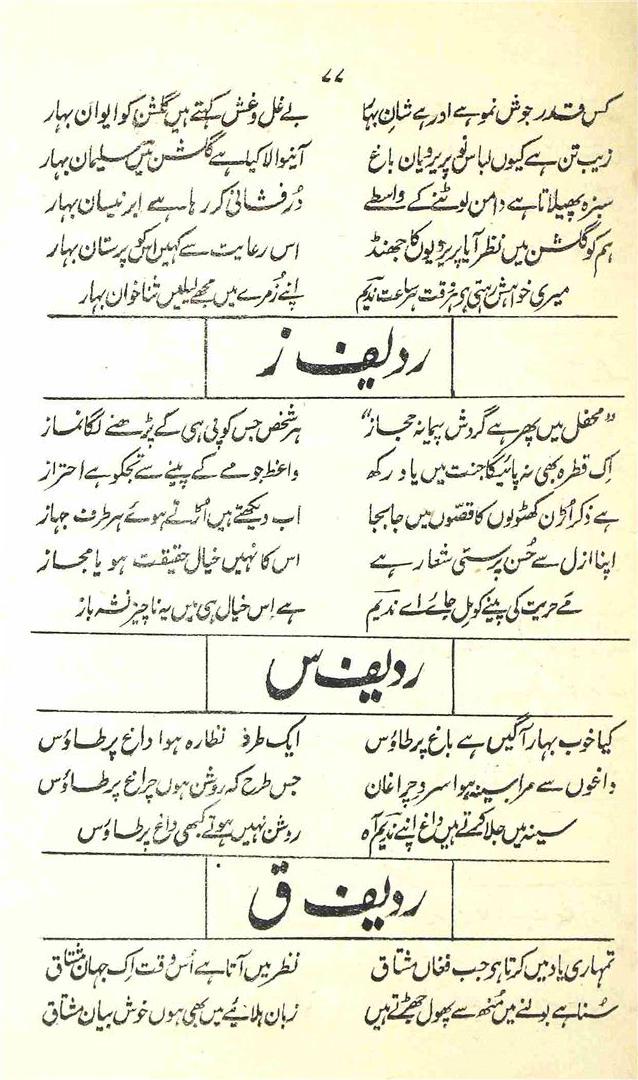 ۷۷
کس قدر جوش نمو ہے اور ہے شان بہار بے غل و غش کہتے ہیں گلشن کو ایوان بہار
زیب تن ہے کیوں لباس نو پریرویان باغ آنیوالا کیا ہے گلشن میں سلیمان بہار
سبزہ پھیلاتا ہے دامن لوٹنے کے واسطے دُر فشانی کر رہا ہے ابر نیسان بہار
ہم کو گلشن میں نظر آیا پریرویوں کا جھنڈ اس رعایت سے کہیں اسکو پرستان بہار
میری خواہش رہتی ہے ہر وقت ہر ساعت ندیمؔ اپنے زُمرے میں مجھے لیلیں ثنا خوان بہار
ردیف ز
"محفل میں پھر ہے گردش پیمانہ حجاز" ہر شخص جس کو پی ہی کے پڑھنے لگا نماز
اِک قطرہ بھی نہ پائیگا جنت میں یاد رکھ واعظ جو مے کے پینے سے تجکو ہے احتراز
ہے ذکر اُڑن کھٹولوں کا قصّوں میں جابجا اب دیکھتے ہیں اُڑتے ہوئے ہر طرف جہاز
اپنا ازل سے حُسن پرستی شعار ہے اس کا نہیں خیال حقیقت ہو یا مجاز
مَے حریت کی پینے کو مل جائے اے ندیمؔ ہے اِس خیال ہی میں یہ ناچیز نشہ باز
ردیف س
کیا خوب بہار آگیں ہے باغ پر طاؤس ایک طرفہ نظارہ ہوا داغ پر طاؤس
داغوں سے مرا سینہ ہوا سرو چراغان جس طرح کہ روشن ہوں چراغ پر طاؤس
سینہ میں جلا کرتے ہیں داغ اپنے ندیمؔ آہ روشن نہیں ہوتے کبھی داغ پر طاؤس
ردیف ق
تمہاری یاد میں کرتا ہو جب فغاں مشتاق نظر میں آتا ہے اُس وقت اِک جہان مشتاق
سُنا ہے بولنے میں مُنھ سے پھول جھڑتے ہیں زبان ہلائیے میں بھی ہوں خوش بیان مشتاق